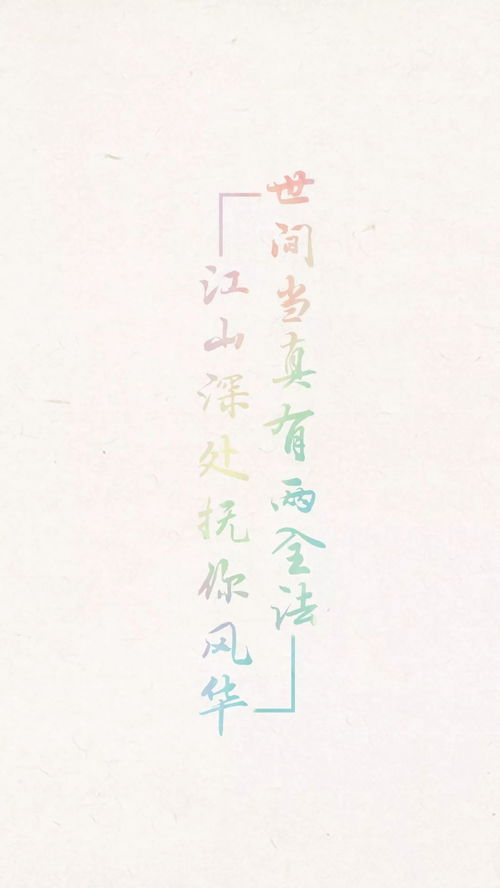 世间当真有两全法
江山深处抚你风华